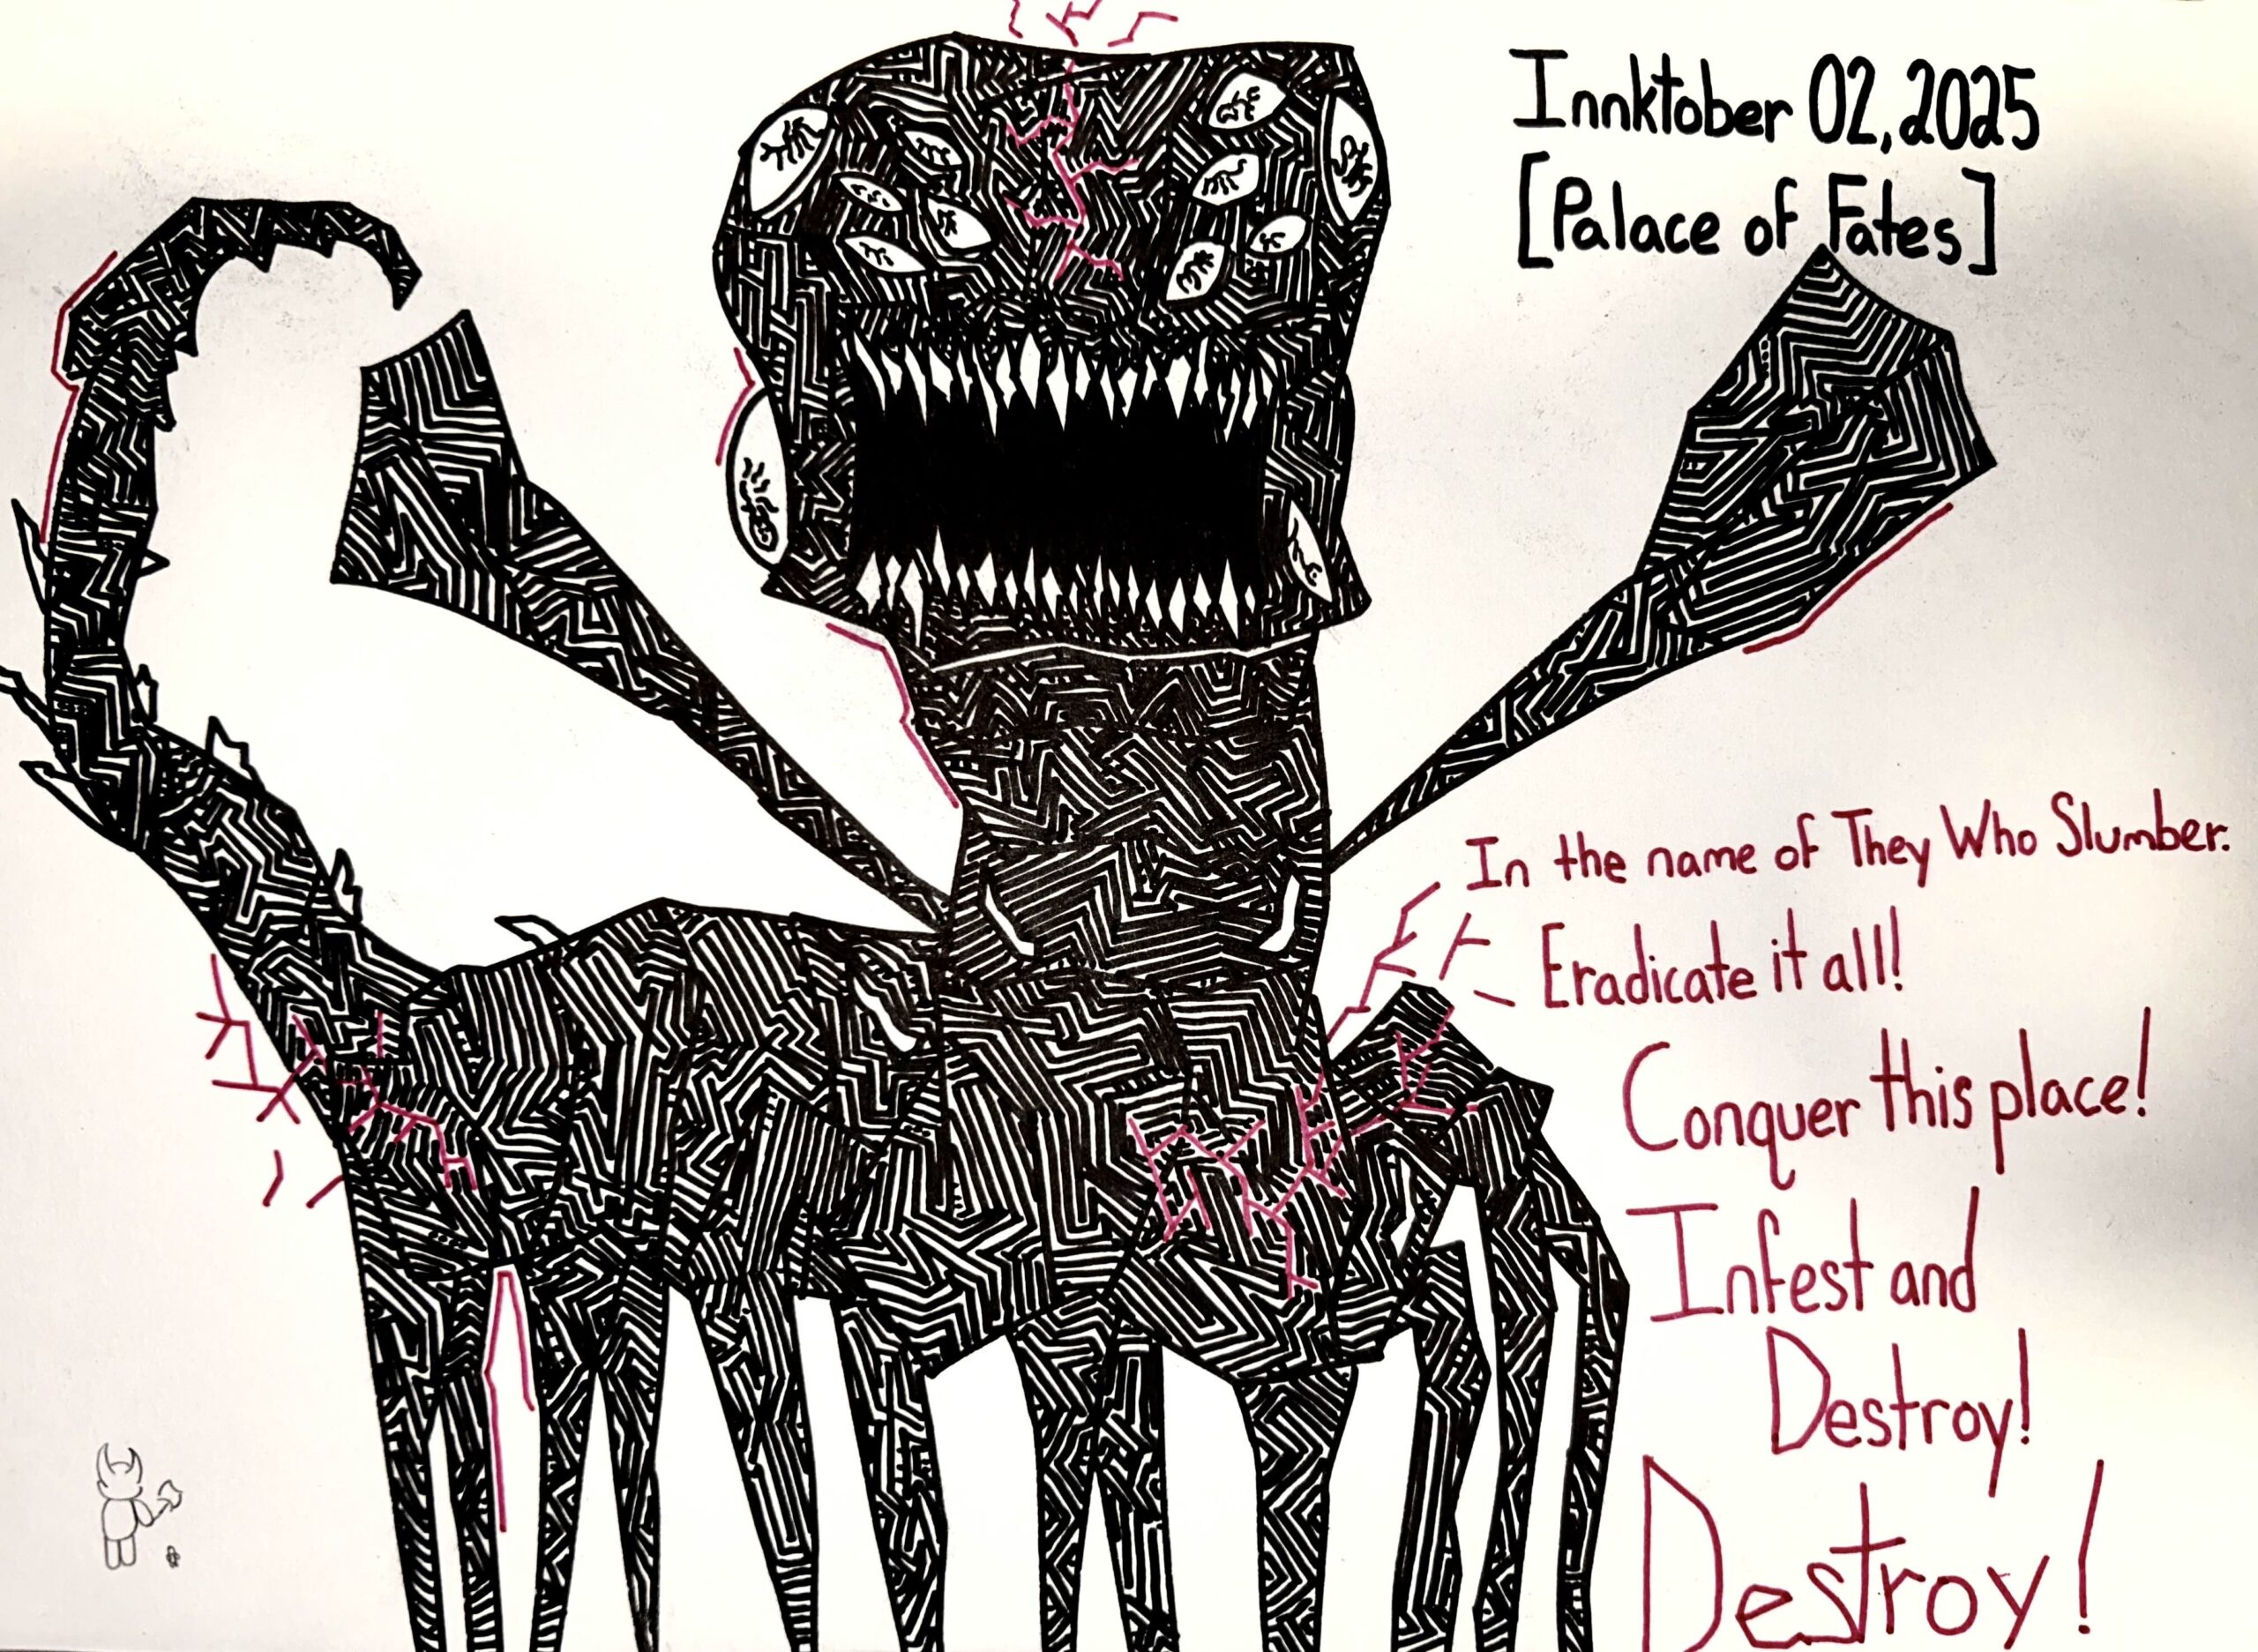 Innktober 02, 2025
[Palace of Fates]
In the name of They Who Slumber.
Eradicate it all!
Conquer this place!
Infest and
Destroy!
Destroy!